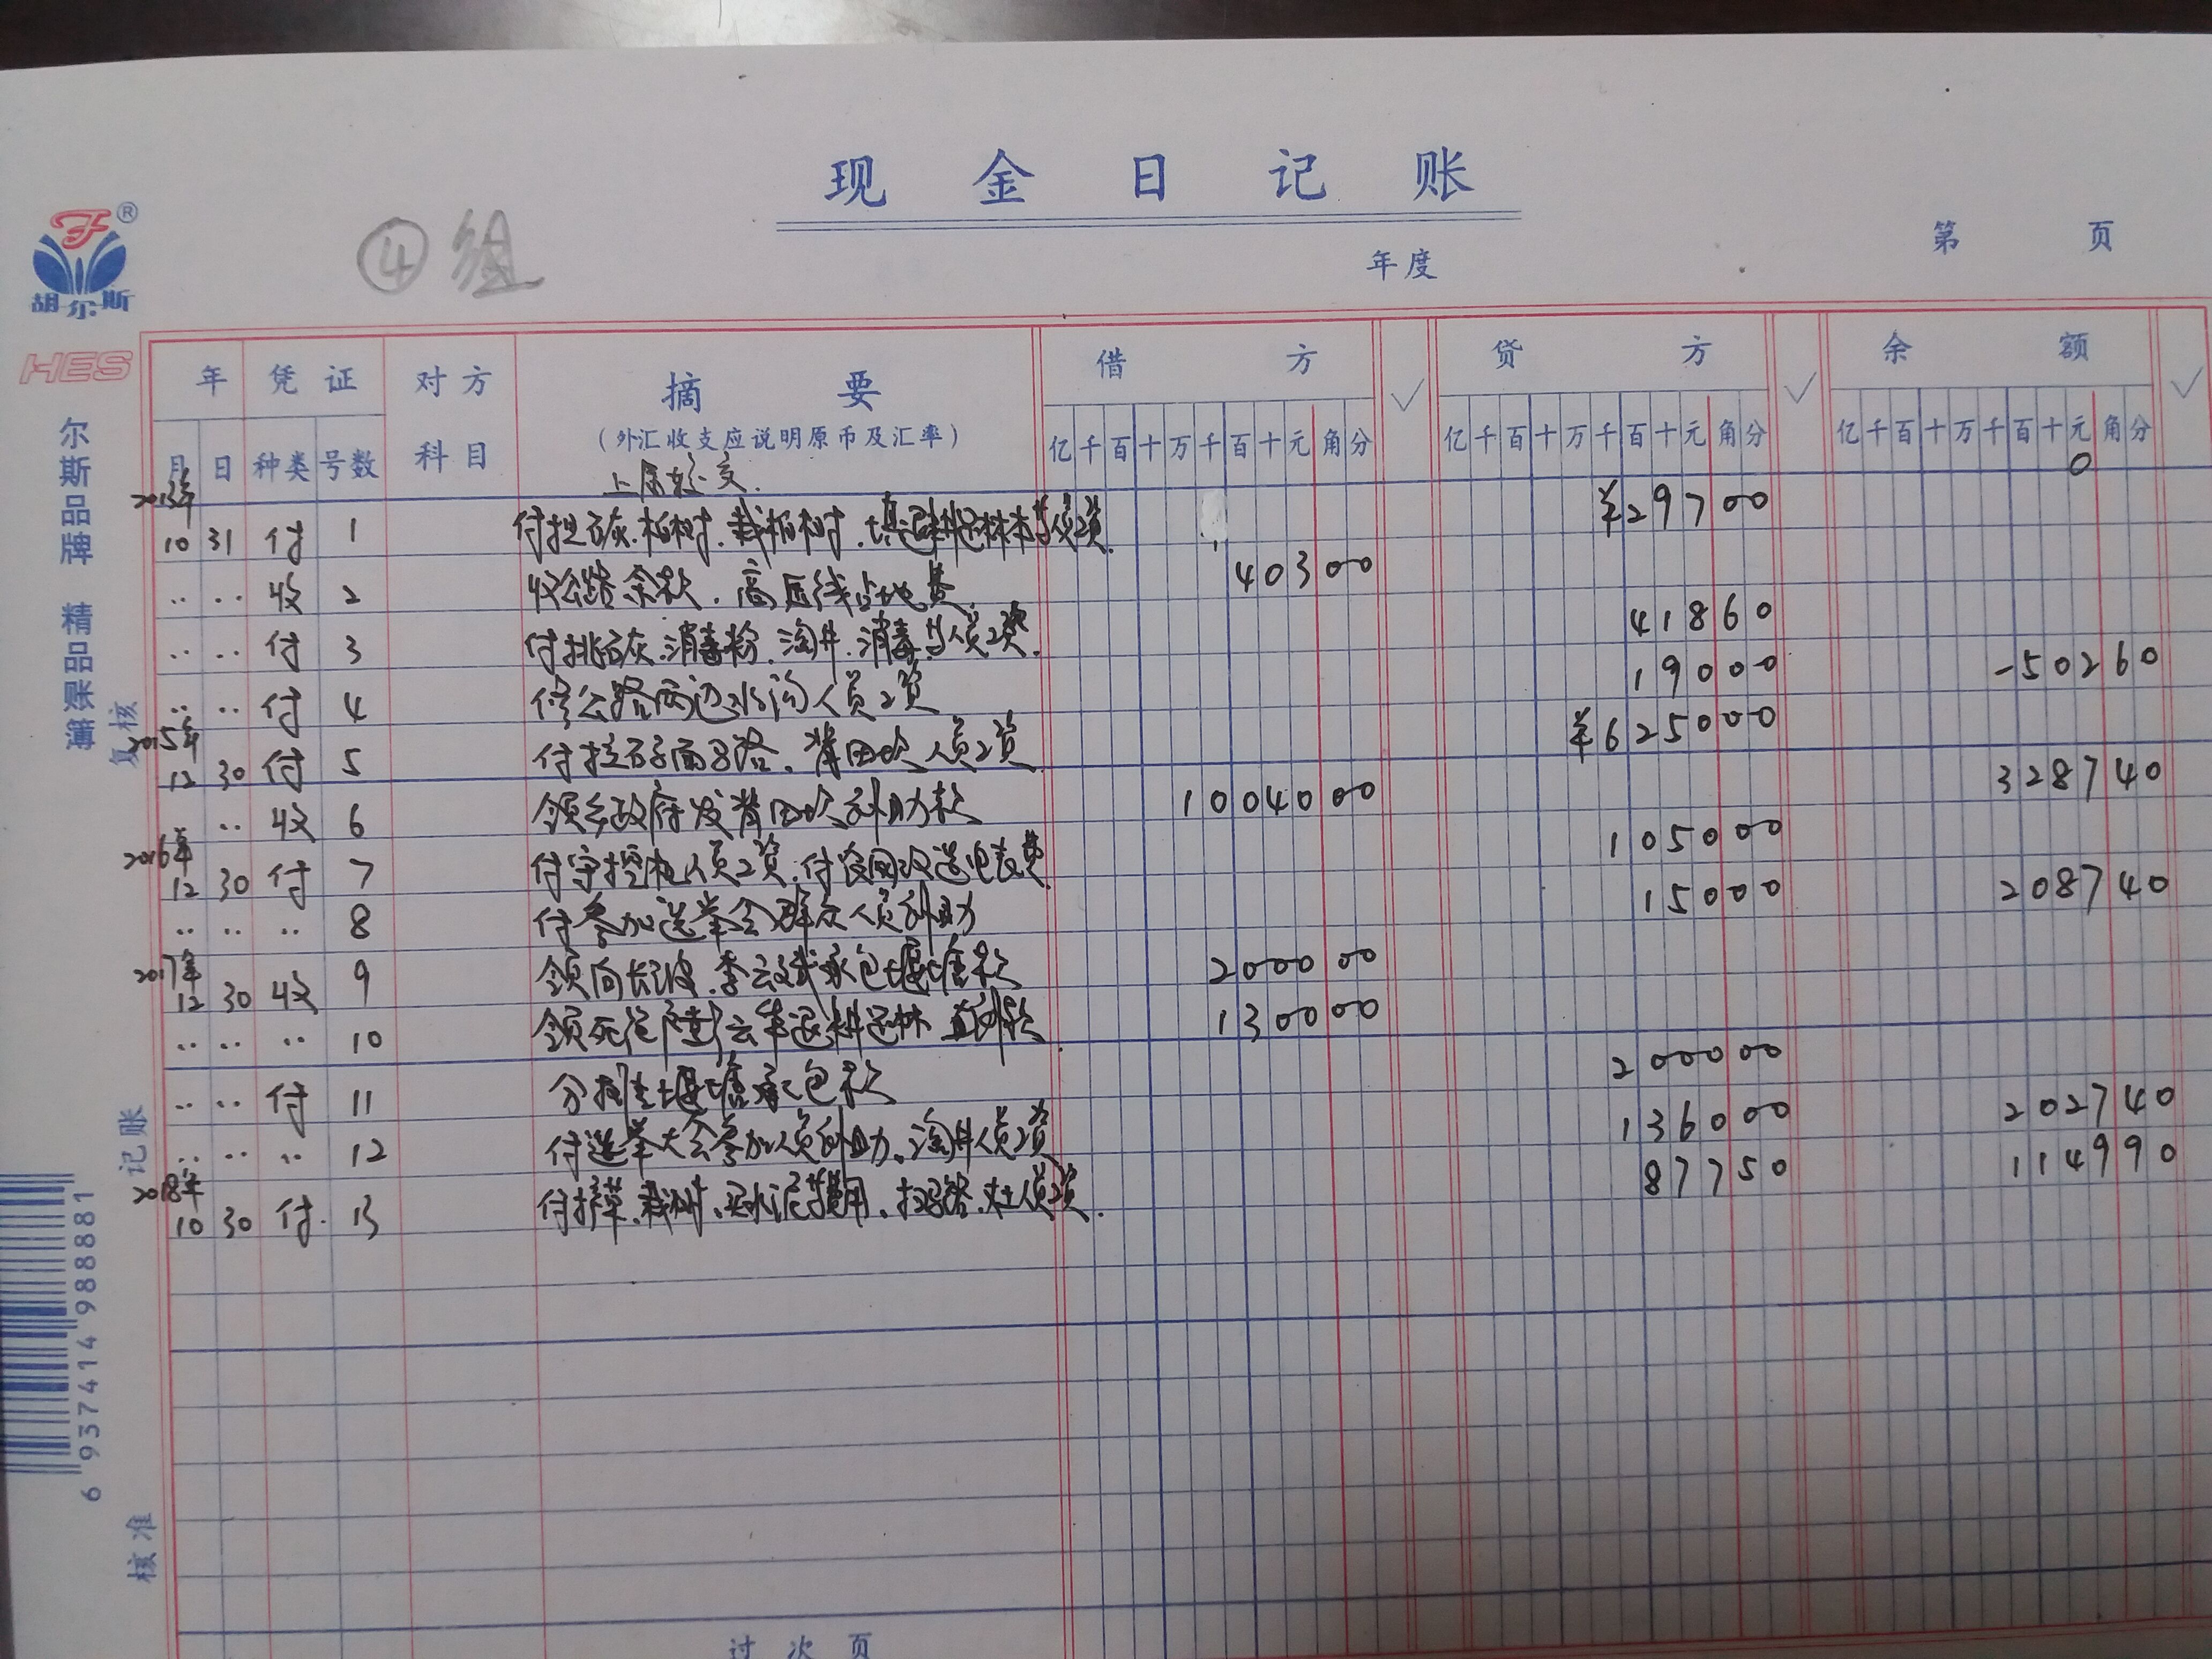 现金日记账
④组
年度
第 页
胡尔斯
HES
尔斯品牌 精品账簿
复核
记账
核准
6 937414 988881
年 凭证 对方科目 摘要 借方 ✓ 贷方 ✓ 余额 ✓
(外汇收支应说明原币及汇率)
月 日 种类 号数 亿千百十万千百十元角分 亿千百十万千百十元角分 亿千百十万千百十元角分
上届移交. 0
2013年
10 31 付 1 付拉石灰.柏树.栽柏树.退耕还林本等人员工资. ¥29700
.. .. 收 2 收公路余款.高压线占地费. 40300
.. .. 付 3 付挑石灰.消毒粉.淘井.消毒等人员工资. 41860
.. .. 付 4 修公路两边水沟人员工资 19000 -50260
2015年
12 30 付 5 付拉石子面马路.背田坎人员工资 ¥625000
.. 收 6 领乡政府发背田坎补助款 1004000 328740
2016年
12 30 付 7 付守挖机人员工资.付农网改造电表费 105000
.. .. .. 8 付参加选举会群众人员补助 15000 208740
2017年
12 30 收 9 领向长波.李云斌承包堰塘款 200000
.. .. .. 10 领死绝户彭云 退耕还林 款 130000
.. .. 付 11 分 堰塘承包款 200000
.. .. .. 12 付选举大会参加人员补助.淘井人员工资 136000 202740
2018年
10 30 付. 13 付 草.栽树.买水泥等费用.扫马路. 人员工资. 87750 114990
过次页